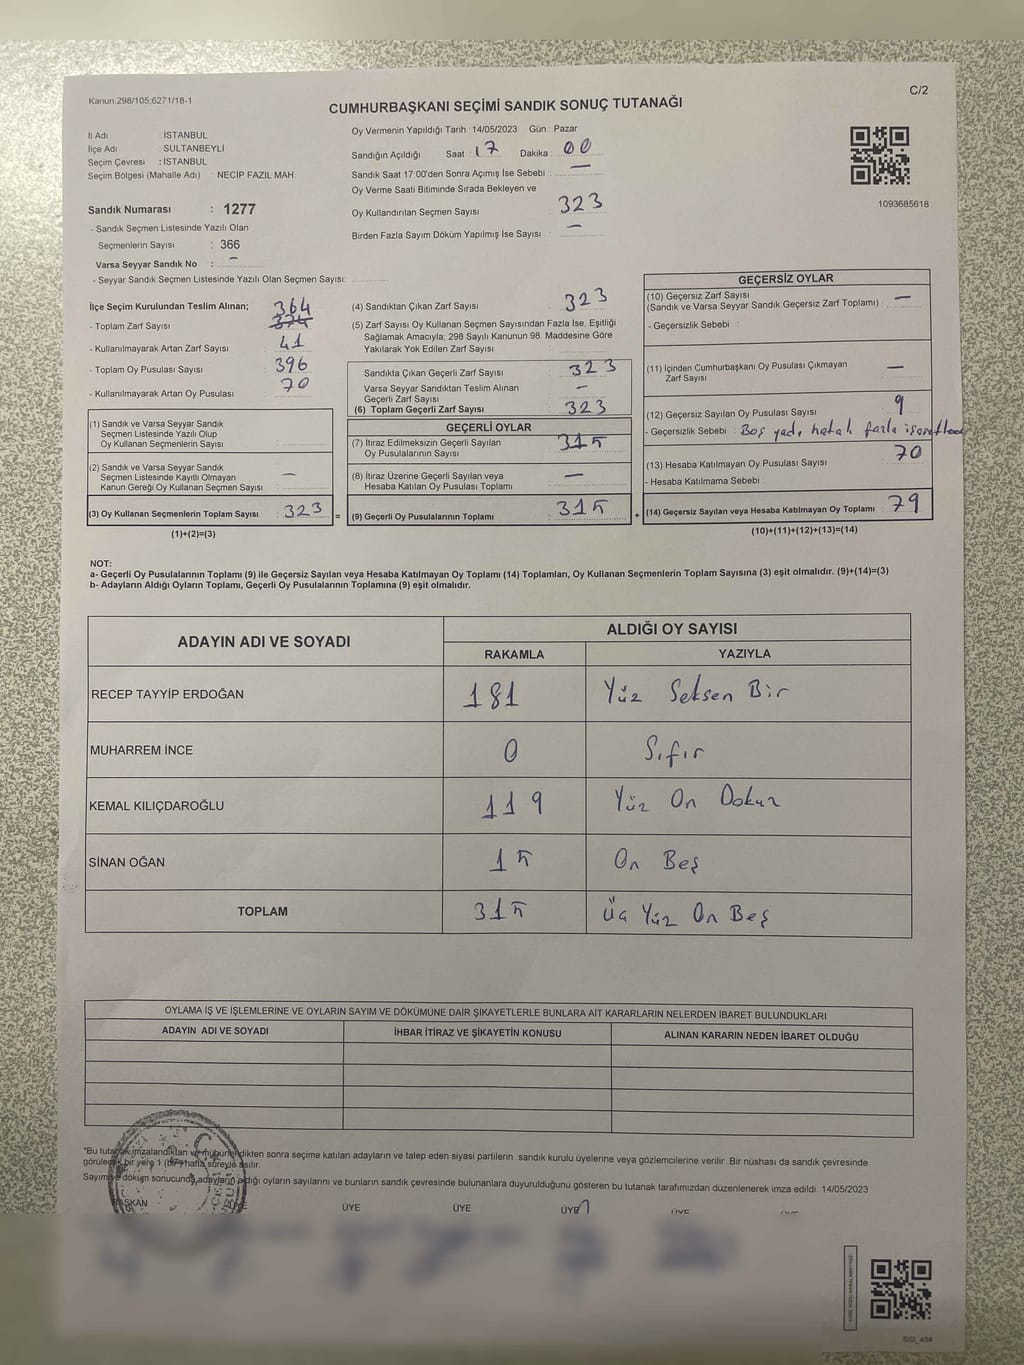 Kanun:298/105;6271/18-1
C/2
CUMHURBAŞKANI SEÇİMİ SANDIK SONUÇ TUTANAĞI
İl Adı : İSTANBUL
İlçe Adı : SULTANBEYLİ
Seçim Çevresi : İSTANBUL
Seçim Bölgesi (Mahalle Adı) : NECİP FAZIL MAH
Sandık Numarası : 1277
- Sandık Seçmen Listesinde Yazılı Olan
Seçmenlerin Sayısı : 366
Varsa Seyyar Sandık No : —
- Seyyar Sandık Seçmen Listesinde Yazılı Olan Seçmen Sayısı:
Oy Vermenin Yapıldığı Tarih : 14/05/2023 Gün : Pazar
Sandığın Açıldığı Saat : 17 Dakika : 00
Sandık Saat 17:00'den Sonra Açımış İse Sebebi : —
Oy Verme Saati Bitiminde Sırada Bekleyen ve
Oy Kullandırılan Seçmen Sayısı : 323
Birden Fazla Sayım Döküm Yapılmış İse Sayısı : —
1093685618
İlçe Seçim Kurulundan Teslim Alınan; 364
- Toplam Zarf Sayısı : 374
- Kullanılmayarak Artan Zarf Sayısı : 41
- Toplam Oy Pusulası Sayısı : 396
- Kullanılmayarak Artan Oy Pusulası : 70
(1) Sandık ve Varsa Seyyar Sandık
Seçmen Listesinde Yazılı Olup
Oy Kullanan Seçmenlerin Sayısı :
(2) Sandık ve Varsa Seyyar Sandık
Seçmen Listesinde Kayıtlı Olmayan
Kanun Gereği Oy Kullanan Seçmen Sayısı : —
(3) Oy Kullanan Seçmenlerin Toplam Sayısı : 323 =
(1)+(2)=(3)
(4) Sandıktan Çıkan Zarf Sayısı : 323
(5) Zarf Sayısı Oy Kullanan Seçmen Sayısından Fazla İse, Eşitliği
Sağlamak Amacıyla; 298 Sayılı Kanunun 98. Maddesine Göre
Yakılarak Yok Edilen Zarf Sayısı :
Sandıkta Çıkan Geçerli Zarf Sayısı : 323
Varsa Seyyar Sandıktan Teslim Alınan
Geçerli Zarf Sayısı : —
(6) Toplam Geçerli Zarf Sayısı : 323
GEÇERLİ OYLAR
(7) İtiraz Edilmeksizin Geçerli Sayılan
Oy Pusulalarının Sayısı : 315
(8) İtiraz Üzerine Geçerli Sayılan veya
Hesaba Katılan Oy Pusulası Toplamı : —
(9) Geçerli Oy Pusulalarının Toplamı : 315 +
GEÇERSİZ OYLAR
(10) Geçersiz Zarf Sayısı
(Sandık ve Varsa Seyyar Sandık Geçersiz Zarf Toplamı) : —
- Geçersizlik Sebebi :
(11) İçinden Cumhurbaşkanı Oy Pusulası Çıkmayan
Zarf Sayısı : —
(12) Geçersiz Sayılan Oy Pusulası Sayısı : 9
- Geçersizlik Sebebi : Boş yada hatalı fazla
(13) Hesaba Katılmayan Oy Pusulası Sayısı : 70
- Hesaba Katılmama Sebebi :
(14) Geçersiz Sayılan veya Hesaba Katılmayan Oy Toplamı : 79
(10)+(11)+(12)+(13)=(14)
NOT:
a- Geçerli Oy Pusulalarının Toplamı (9) ile Geçersiz Sayılan veya Hesaba Katılmayan Oy Toplamı (14) Toplamları, Oy Kullanan Seçmenlerin Toplam Sayısına (3) eşit olmalıdır. (9)+(14)=(3)
b- Adayların Aldığı Oyların Toplamı, Geçerli Oy Pusulalarının Toplamına (9) eşit olmalıdır.
ADAYIN ADI VE SOYADI
ALDIĞI OY SAYISI
RAKAMLA YAZIYLA
RECEP TAYYİP ERDOĞAN 181 Yüz Seksen Bir
MUHARREM İNCE 0 Sıfır
KEMAL KILIÇDAROĞLU 119 Yüz On Dokuz
SİNAN OĞAN 15 On Beş
TOPLAM 315 Üç Yüz On Beş
OYLAMA İŞ VE İŞLEMLERİNE VE OYLARIN SAYIM VE DÖKÜMÜNE DAİR ŞİKAYETLERLE BUNLARA AİT KARARLARIN NELERDEN İBARET BULUNDUKLARI
ADAYIN ADI VE SOYADI İHBAR İTİRAZ VE ŞİKAYETİN KONUSU ALINAN KARARIN NEDEN İBARET OLDUĞU
*Bu tutanak imzalandıktan ve mühürlendikten sonra seçime katılan adayların ve talep eden siyasi partilerin sandık kurulu üyelerine veya gözlemcilerine verilir. Bir nüshası da sandık çevresinde
görülecek bir yere 1 (bir) hafta süreyle asılır.
Sayım ve döküm sonucunda adayların aldığı oyların sayılarını ve bunların sandık çevresinde bulunanlara duyurulduğunu gösteren bu tutanak tarafımızdan düzenlenerek imza edildi. 14/05/2023
BAŞKAN ÜYE ÜYE ÜYE ÜYE ÜYE ÜYE
SSI_404